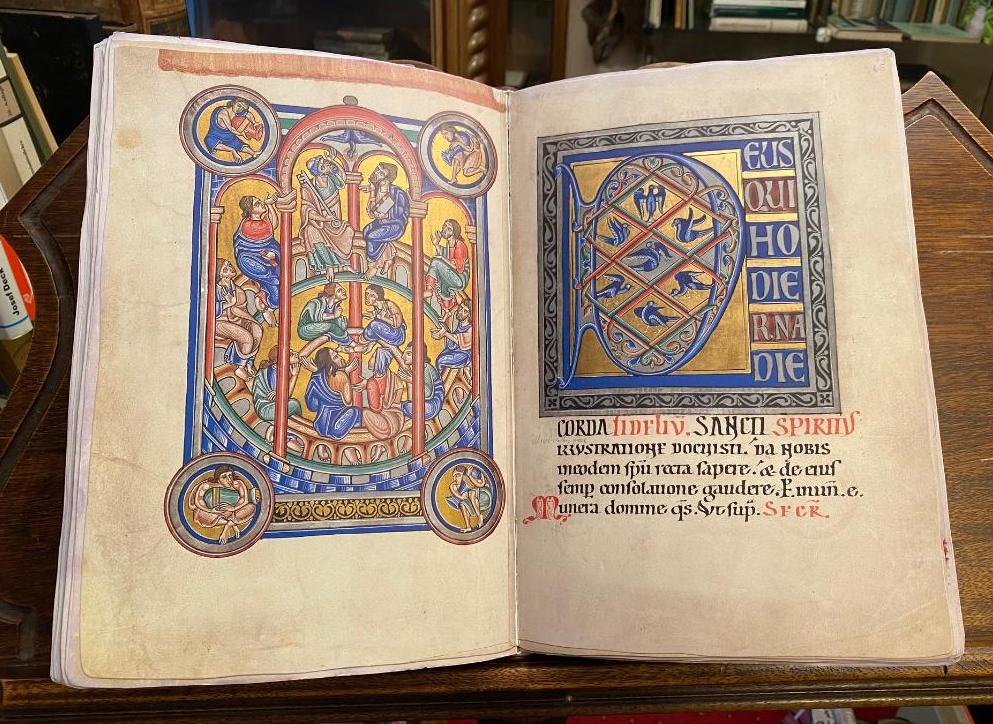 Josef Deck
DEUS
QUI
HO
DIE
RNA
DIE
CORDA fideliū. SANCTI SPIRITUS
ILLUSTRATIONE DOCUISTI. DA NOBIS
in eodem spū recta sapere. & de eius
semp consolatione gaudere. P.
Munera domine qs. Ut sup. SECR.